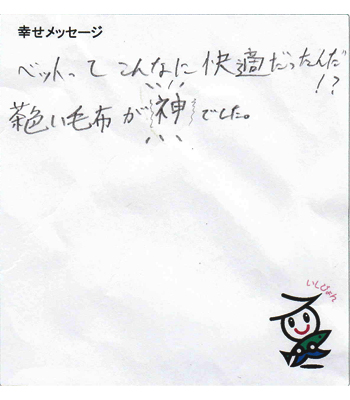 幸せメッセージ
ベットって こんなに 快適だったんだ
!?
茶色い毛布が 神 でした。
いしぴょん